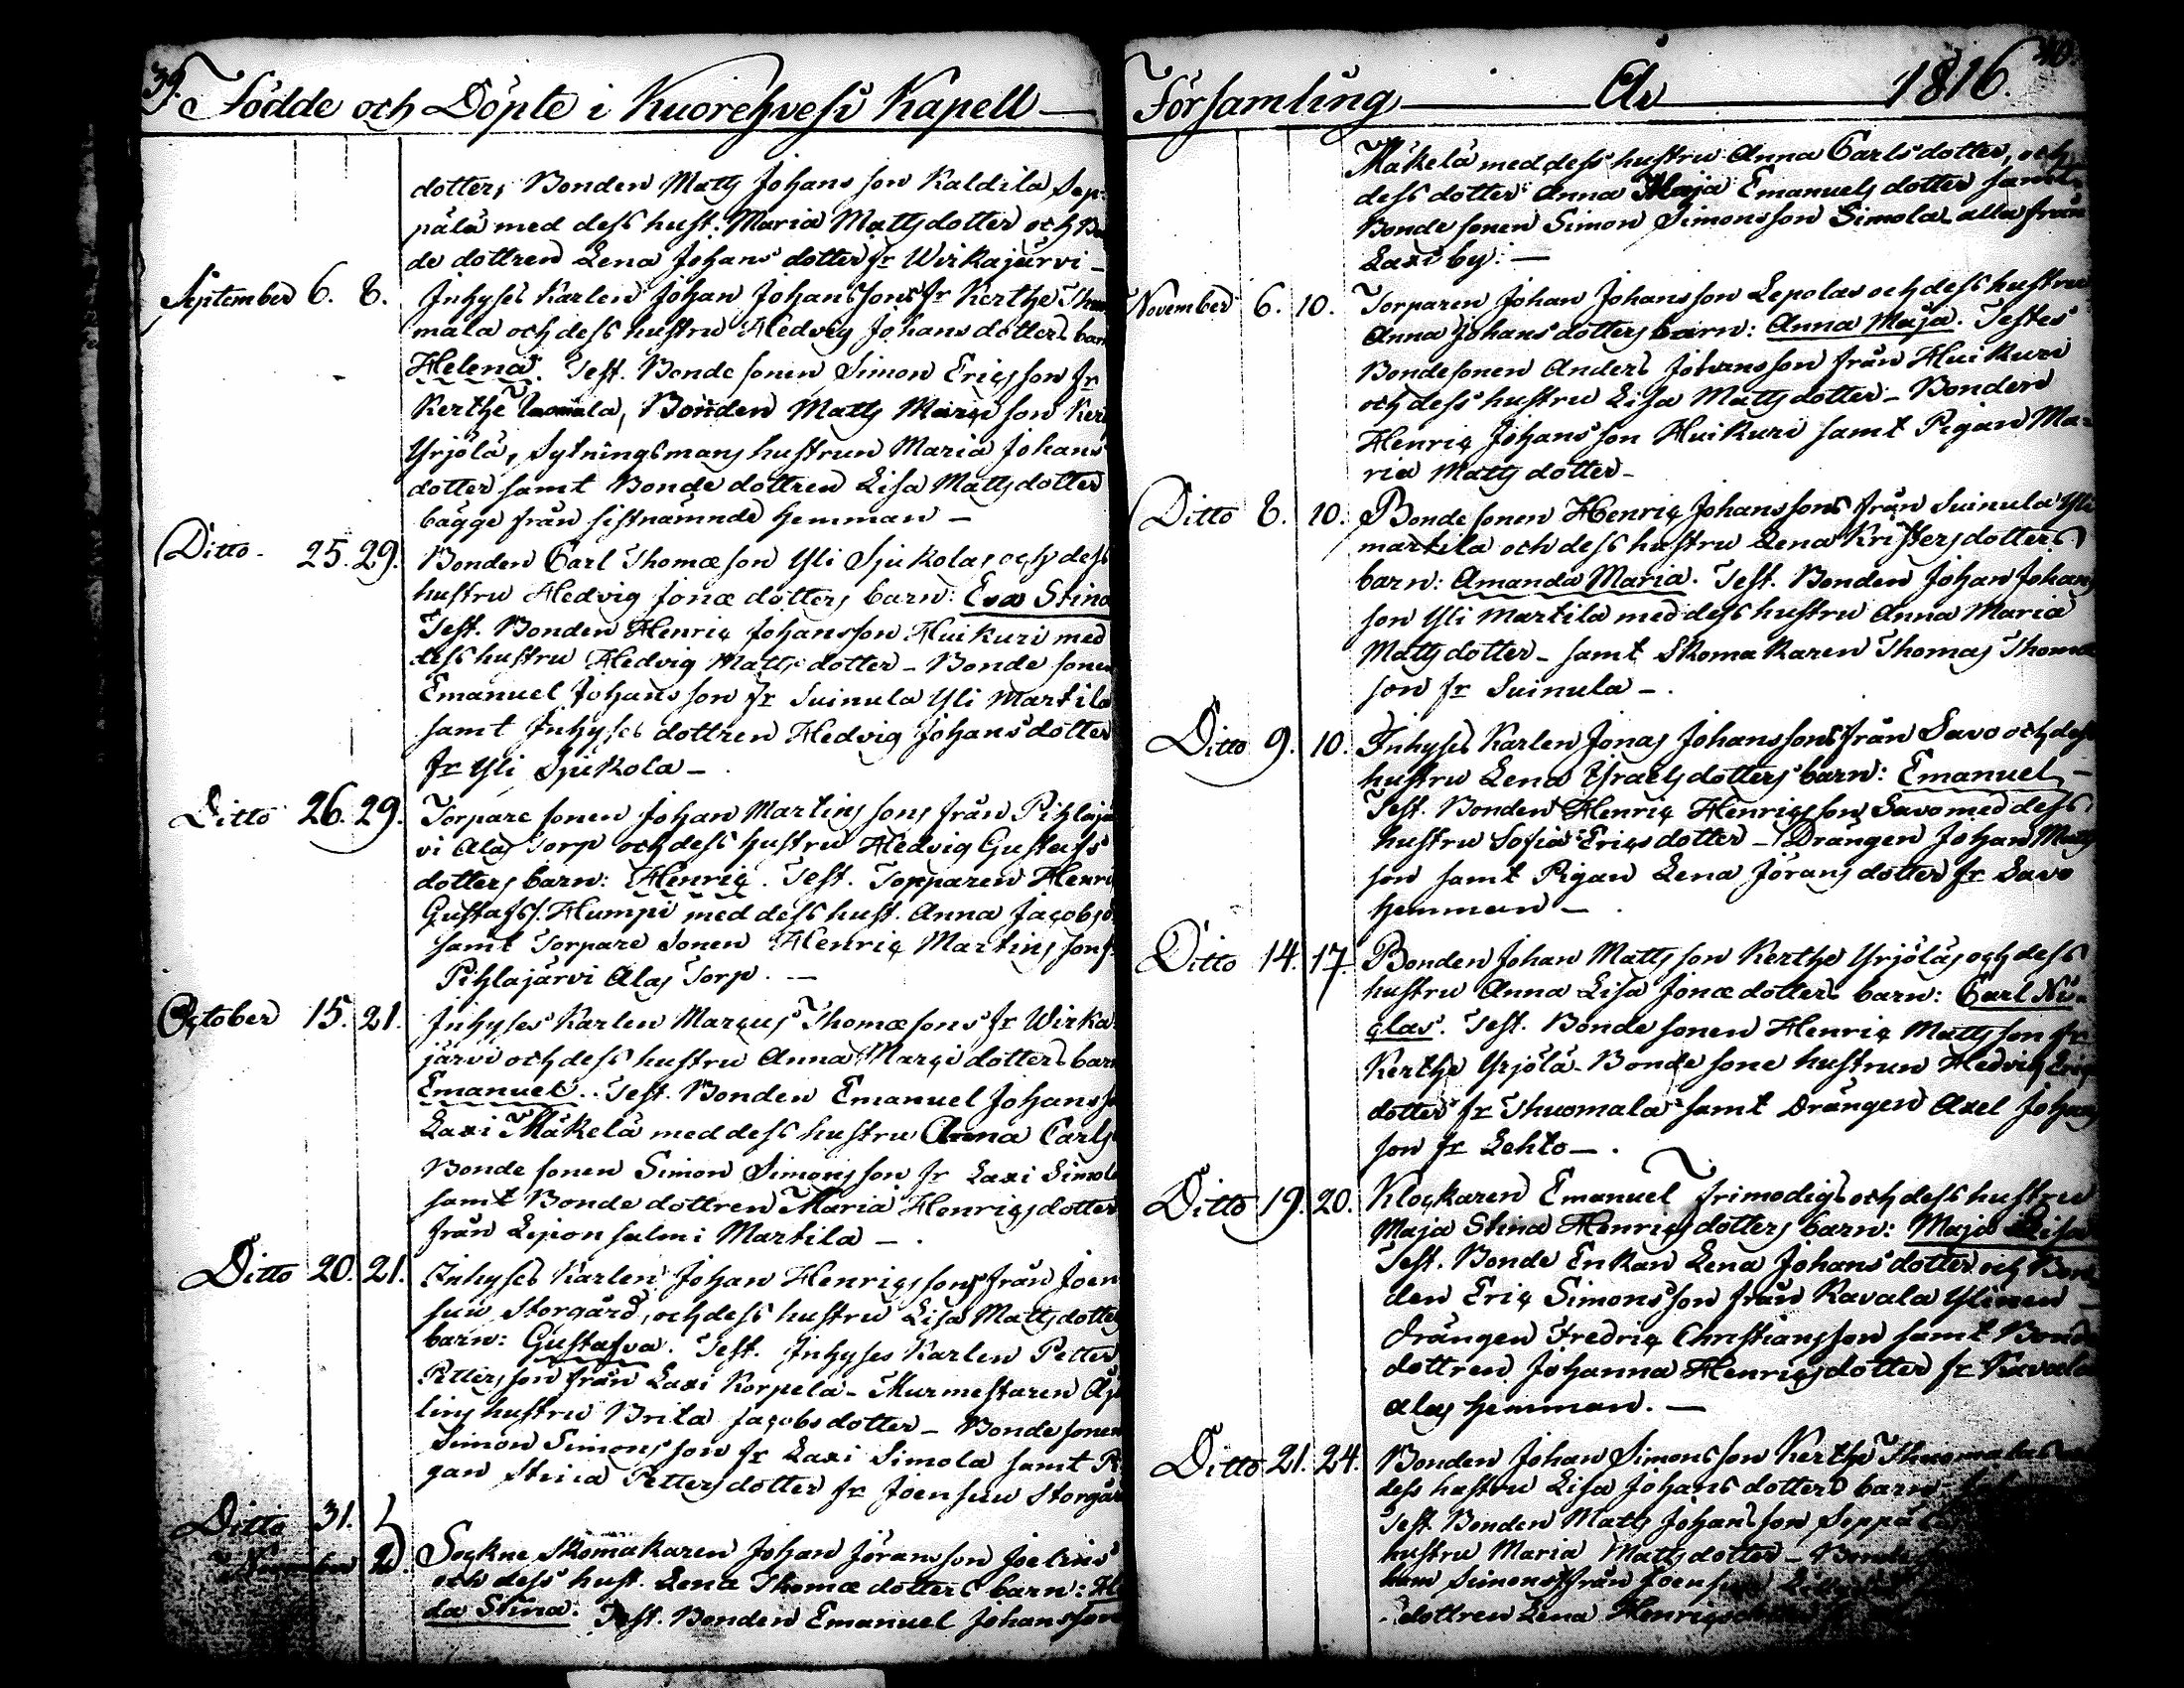 39.
Födde och Döpte i Kuorehvesi Kapell
dotter, Bonden Matts Johansson Kaldila Sep-
pälä med dess hust. Maria Mattsdotter och Bon
de dottren Lena Johansdotter fr Wirkajärvi -
September 6. 8. Inhyses Karlen Johan Johanssons fr Kerthe Thuo
mala och dess hustru Hedvig Johansdotters barn
Helena. Test. Bonde sonen Simon Ericsson fr
Kerthe Tuomala, Bonden Matts Marci son Ker
Yrjölä, Sytningsmans hustrun Maria Johans
dotter samt Bonde dottren Lisa Mattsdotter
bägge från sistnämnde hemman -
Ditto - 25. 29. Bonden Carl Thomæson Yli Sjukolas och dess
hustru Hedvig Jonæ dotters barn: Eva Stina
Test. Bonden Henric Johansson Huikuri med
dess hustru Hedvig Mattsdotter - Bonde sonen
Emanuel Johansson fr Suinula Yli Martila
samt Inhyses dottren Hedvig Johansdotter
fr Yli Sjukola -
Ditto 26. 29. Torpare sonen Johan Martinssons från Pihlajä
vi Alas Torp och dess hustru Hedvig Gustafs
dotters barn: Henric. Test. Torparen Henri
Gustafss. Humpi med dess hust. Anna Jacobsd
samt Torpare Sonen Henric Martinsson f
Pihlajärvi Alas Torp. -
October 15. 21. Inhyses Karlen Marcus Thomæsons fr Wirka
järvi och dess hustru Anna Marci dotters barn
Emanuel. Test. Bonden Emanuel Johansso
Laxi Mäkelä med dess hustru Anna Carls
Bonde sonen Simon Simonsson fr Laxi Simola
samt Bonde dottren Maria Henricsdotter
från Lejonsalmi Martila -
Ditto 20. 21. Inhyses Karlen Johan Henricssons från Joen
suu Storgård, och dess hustru Lisa Mattsdotters
barn: Gustafva. Test. Inhyses Karlen Petter
Pettersson från Laxi Korpela - Murmestaren
lins hustru Brita Jacobsdotter - Bonde sonen
Simon Simonsson fr Laxi Simola samt Pi
gan Stina Pettersdotter fr Joensuu Storgår
Ditto 31.
November 2. Sockne Skomakaren Johan Jöransson Joelins
och dess hust. Lena Thomædotters barn: H
da Stina. Test. Bonden Emanuel Johansson
40.
Församling År 1816.
Mäkelä med dess hustru Anna Carlsdotter, och
dess dotter Anna Maja Emanuelsdotter samt
Bonde sonen Simon Simonsson Simola alla från
Laxi by: -
November 6. 10. Torparen Johan Johansson Lepolas och dess hustru
Anna Johansdotters barn: Anna Maja. Testes
Bondesonen Anders Johansson från Huikuri
och dess hustru Lisa Mattsdotter - Bonden
Henric Johansson Huikuri samt Pigan Ma-
ria Mattsdotter -
Ditto 8. 10. Bonde sonen Henric Johanssons från Suinula Yli
martila och dess hustru Lena Kristersdotters
barn: Amanda Maria. Test. Bonden Johan Johans
son Yli Martila med dess hustru Anna Maria
Mattsdotter - samt Skomakaren Thomas Thomæ
son fr Suinula -
Ditto 9. 10. Inhyses Karlen Jonas Johanssons från Savo och dess
hustru Lena Israelsdotters barn: Emanuel -
Test. Bonden Henric Henricsson Savo med dess
hustru Sofia Ericsdotter - Drängen Johan Matts
son samt Pigan Lena Jöransdotter fr Savo
hemman -
Ditto 14. 17. Bonden Johan Mattsson Kerthe Yrjöläs och dess
hustru Anna Lisa Jonædotters barn: Carl Ni-
clas. Test. Bonde sonen Henric Mattsson fr
Kerthe Yrjölä - Bonde sone hustrun Hedvig Erics
dotter fr Thuomala samt Drängen Axel Johans
son fr Lehto -
Ditto 19. 20. Klockaren Emanuel Frimodigs och dess hustru
Maja Stina Henricsdotters barn: Maja Lisa
Test. Bonde Enkan Lena Johansdotter och Bon
den Eric Simonsson från Kavala Ylinen -
drängen Fredric Christiansson samt Bonde
dottren Johanna Henricsdotter fr Kavala
alas hemman. -
Ditto 21. 24. Bonden Johan Simonsson Kerthe Thuomalas
dess hustru Lisa Johansdotters barn
Test Bonden Matts Johansson Seppäl
hustru Maria Mattsdotter - Bonde
Simons från Joensuu
dottren Lena Henricsd